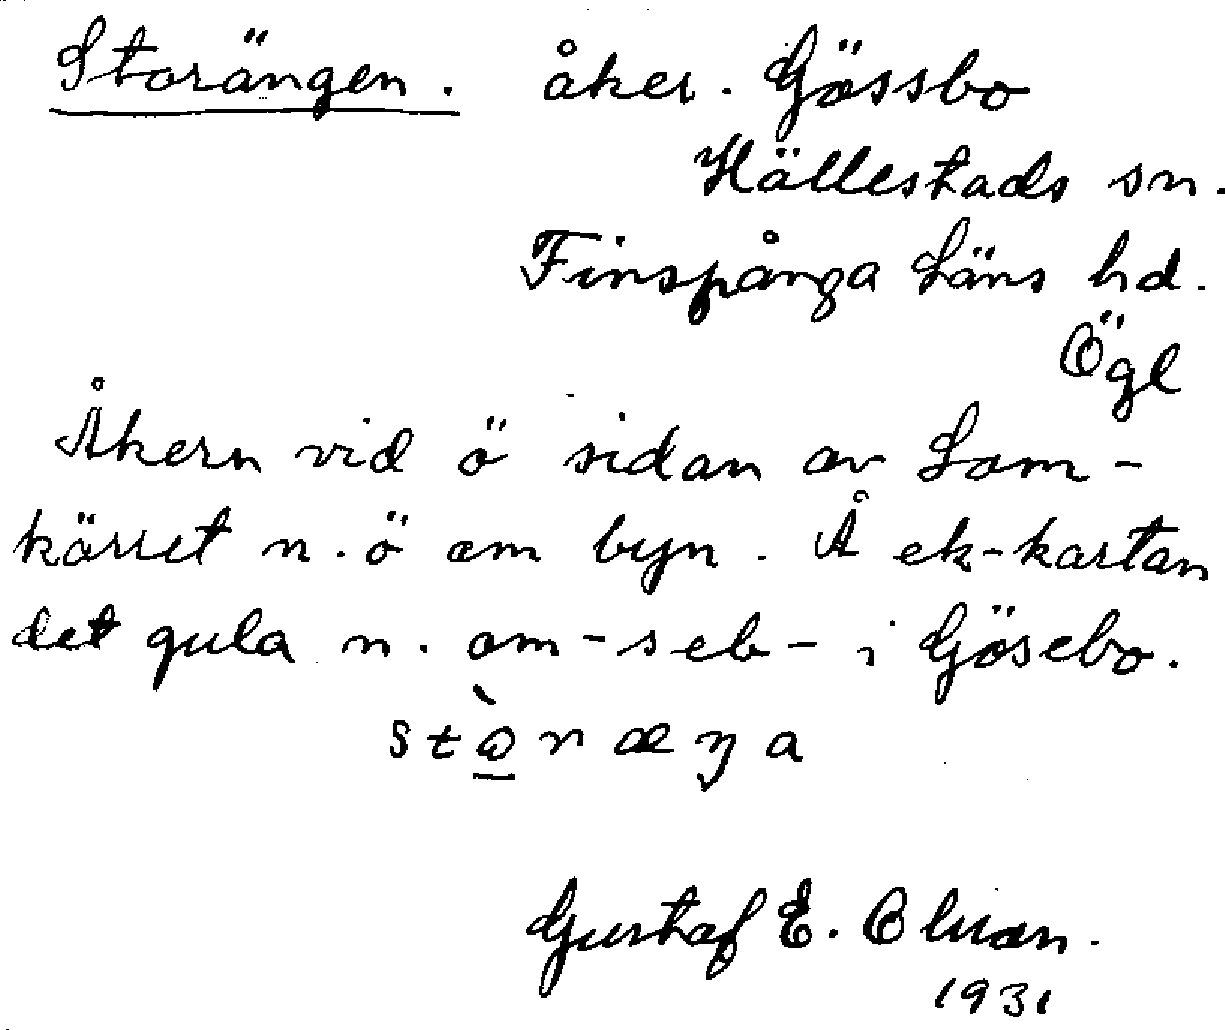 Storängen. åker. Gössbo
Hällestads sn.
Finspånga Läns hd.
Ögl
Åkern vid ö sidan av Lom-
kärret n.ö om byn. Å ek-kartan
det gula n. om -seb- i Gösebo.
Gustaf E.
1931